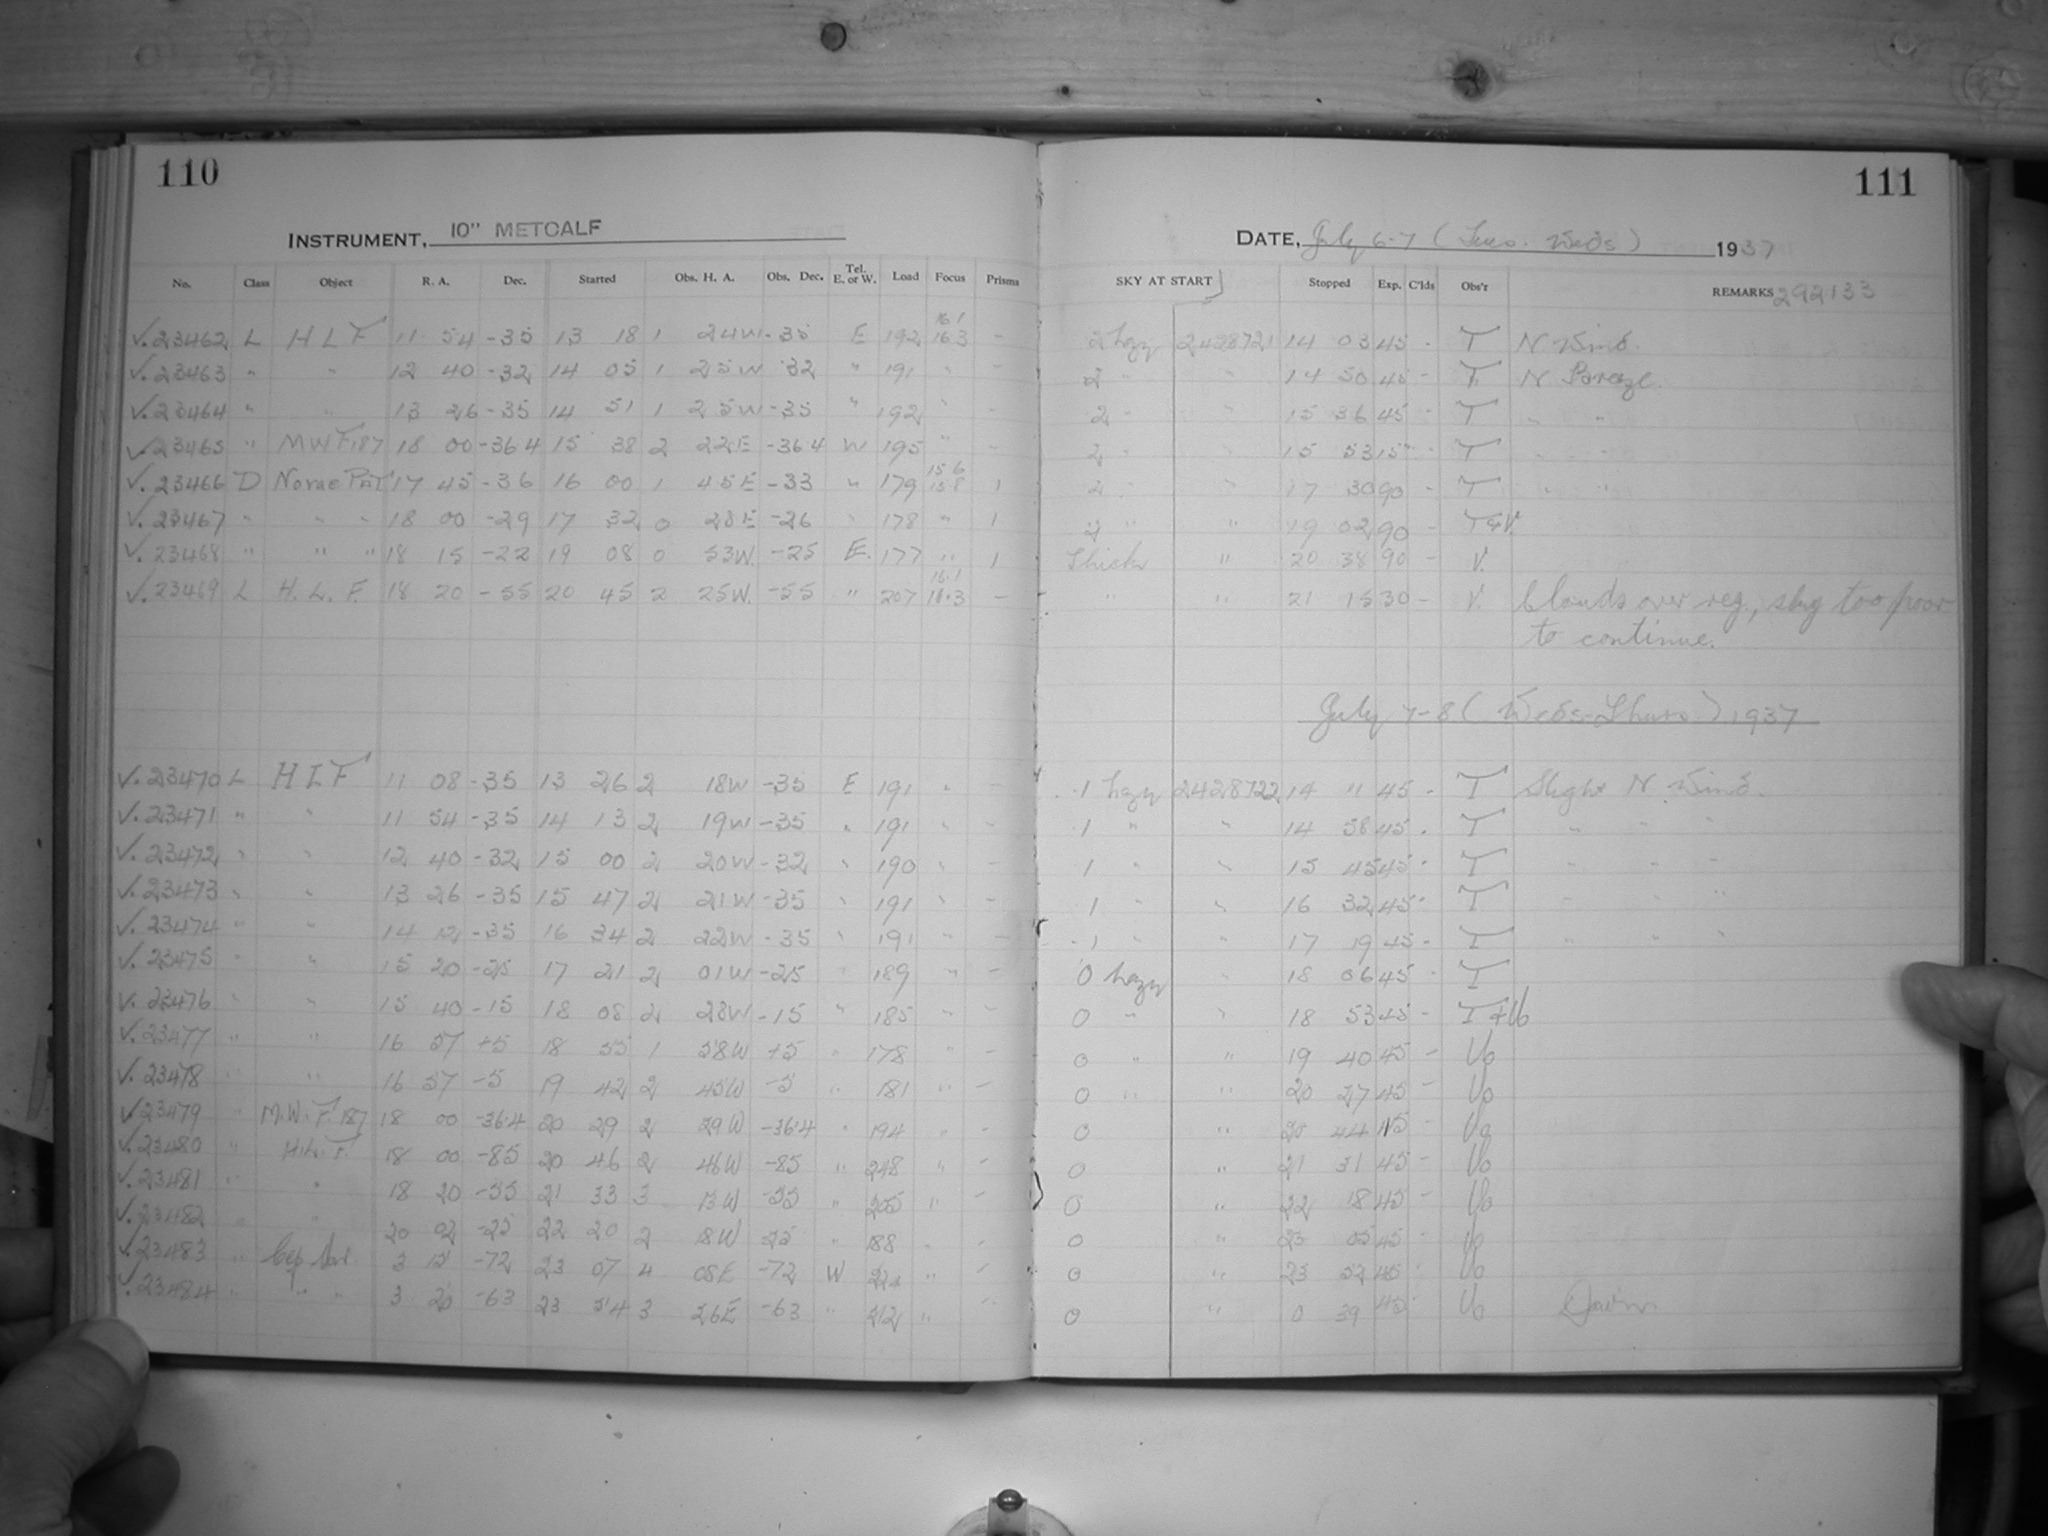 110
111
INSTRUMENT, 10" METCALF
DATE, July 6-7 (Tues. Weds) 1937
No. Class Object R. A. Dec. Started Obs. H. A. Obs. Dec. Tel. E. or W. Load Focus Prisms SKY AT START Stopped Exp. C'lds Obs'r REMARKS 292133
✓. 23462 L H L F 11 54 -35 13 18 1 24W -35 E 192 16.1 16.3 - 2 hazy 2428721 14 03 45 - T N Wind.
✓. 23463 " " 12 40 -32 14 05 1 25W 32 " 191 " - 2 " " 14 50 45 - T N Breeze.
✓. 23464 " " 13 26 -35 14 51 1 25W -35 " 192 " - 2 " " 15 36 45 - T " "
✓. 23465 " MWF187 18 00 -36.4 15 38 2 22E -36.4 W 195 " - 2 " " 15 53 15 - T " "
✓. 23466 D Novae Pat 17 45 -36 16 00 1 45E -33 " 179 15.6 15.8 1 2 " " 17 30 90 - T " "
✓. 23467 " " " 18 00 -29 17 32 0 28E -26 " 178 " 1 2 " " 19 02 90 - T&V.
✓. 23468 " " " 18 15 -22 19 08 0 53W. -25 E. 177 " 1 Thick " 20 38 90 - V.
✓. 23469 L H. L. F. 18 20 -55 20 45 2 25W. -55 " 207 16.1 16.3 - " " 21 15 30 - V. Clouds over reg., sky too poor
to continue.
July 7-8 (Weds-Thurs) 1937
✓. 23470 L H L F 11 08 -35 13 26 2 18W -35 E 191 " - 1 hazy 2428722 14 11 45 - T Slight N. Wind.
✓. 23471 " " 11 54 -35 14 13 2 19W -35 " 191 " - 1 " " 14 58 45 . T " " "
✓. 23472 " " 12 40 -32 15 00 2 20W -32 " 190 " - 1 " " 15 45 45 - T " " "
✓. 23473 " " 13 26 -35 15 47 2 21W -35 " 191 " - 1 " " 16 32 45 - T " " "
✓. 23474 " " 14 12 -35 16 34 2 22W -35 " 191 " - 1 " " 17 19 45 - T " " "
✓. 23475 " " 15 20 -25 17 21 2 01W -25 " 189 " - 0 hazy " 18 06 45 - T
✓. 23476 " " 15 40 -15 18 08 2 28W -15 " 185 " - 0 " " 18 53 45 - T + Vo
✓. 23477 " " 16 57 +5 18 55 1 58W +5 " 178 " - 0 " " 19 40 45 - Vo
✓. 23478 " " 16 57 -5 19 42 2 45W -5 " 181 " - 0 " " 20 27 45 - Vo
✓. 23479 " M.W.F.187 18 00 -36.4 20 29 2 29W -36.4 " 194 " - 0 " 20 44 15 - Vo
✓. 23480 " H.L.F. 18 00 -85 20 46 2 46W -85 " 248 " - 0 " 21 31 45 - Vo
✓. 23481 " " 18 20 -55 21 33 3 13W -55 " 205 " - 0 " 22 18 45 - Vo
✓. 23482 " " 20 02 -25 22 20 2 18W 25 " 188 " - 0 " 23 05 45 - Vo
✓. 23483 " 3 15 -72 23 07 4 08E -72 W " - 0 " 23 52 45 - Vo
✓. 23484 " " " 3 20 -63 23 54 3 26E -63 " 212 " - 0 " 0 39 45 - Vo Dawn